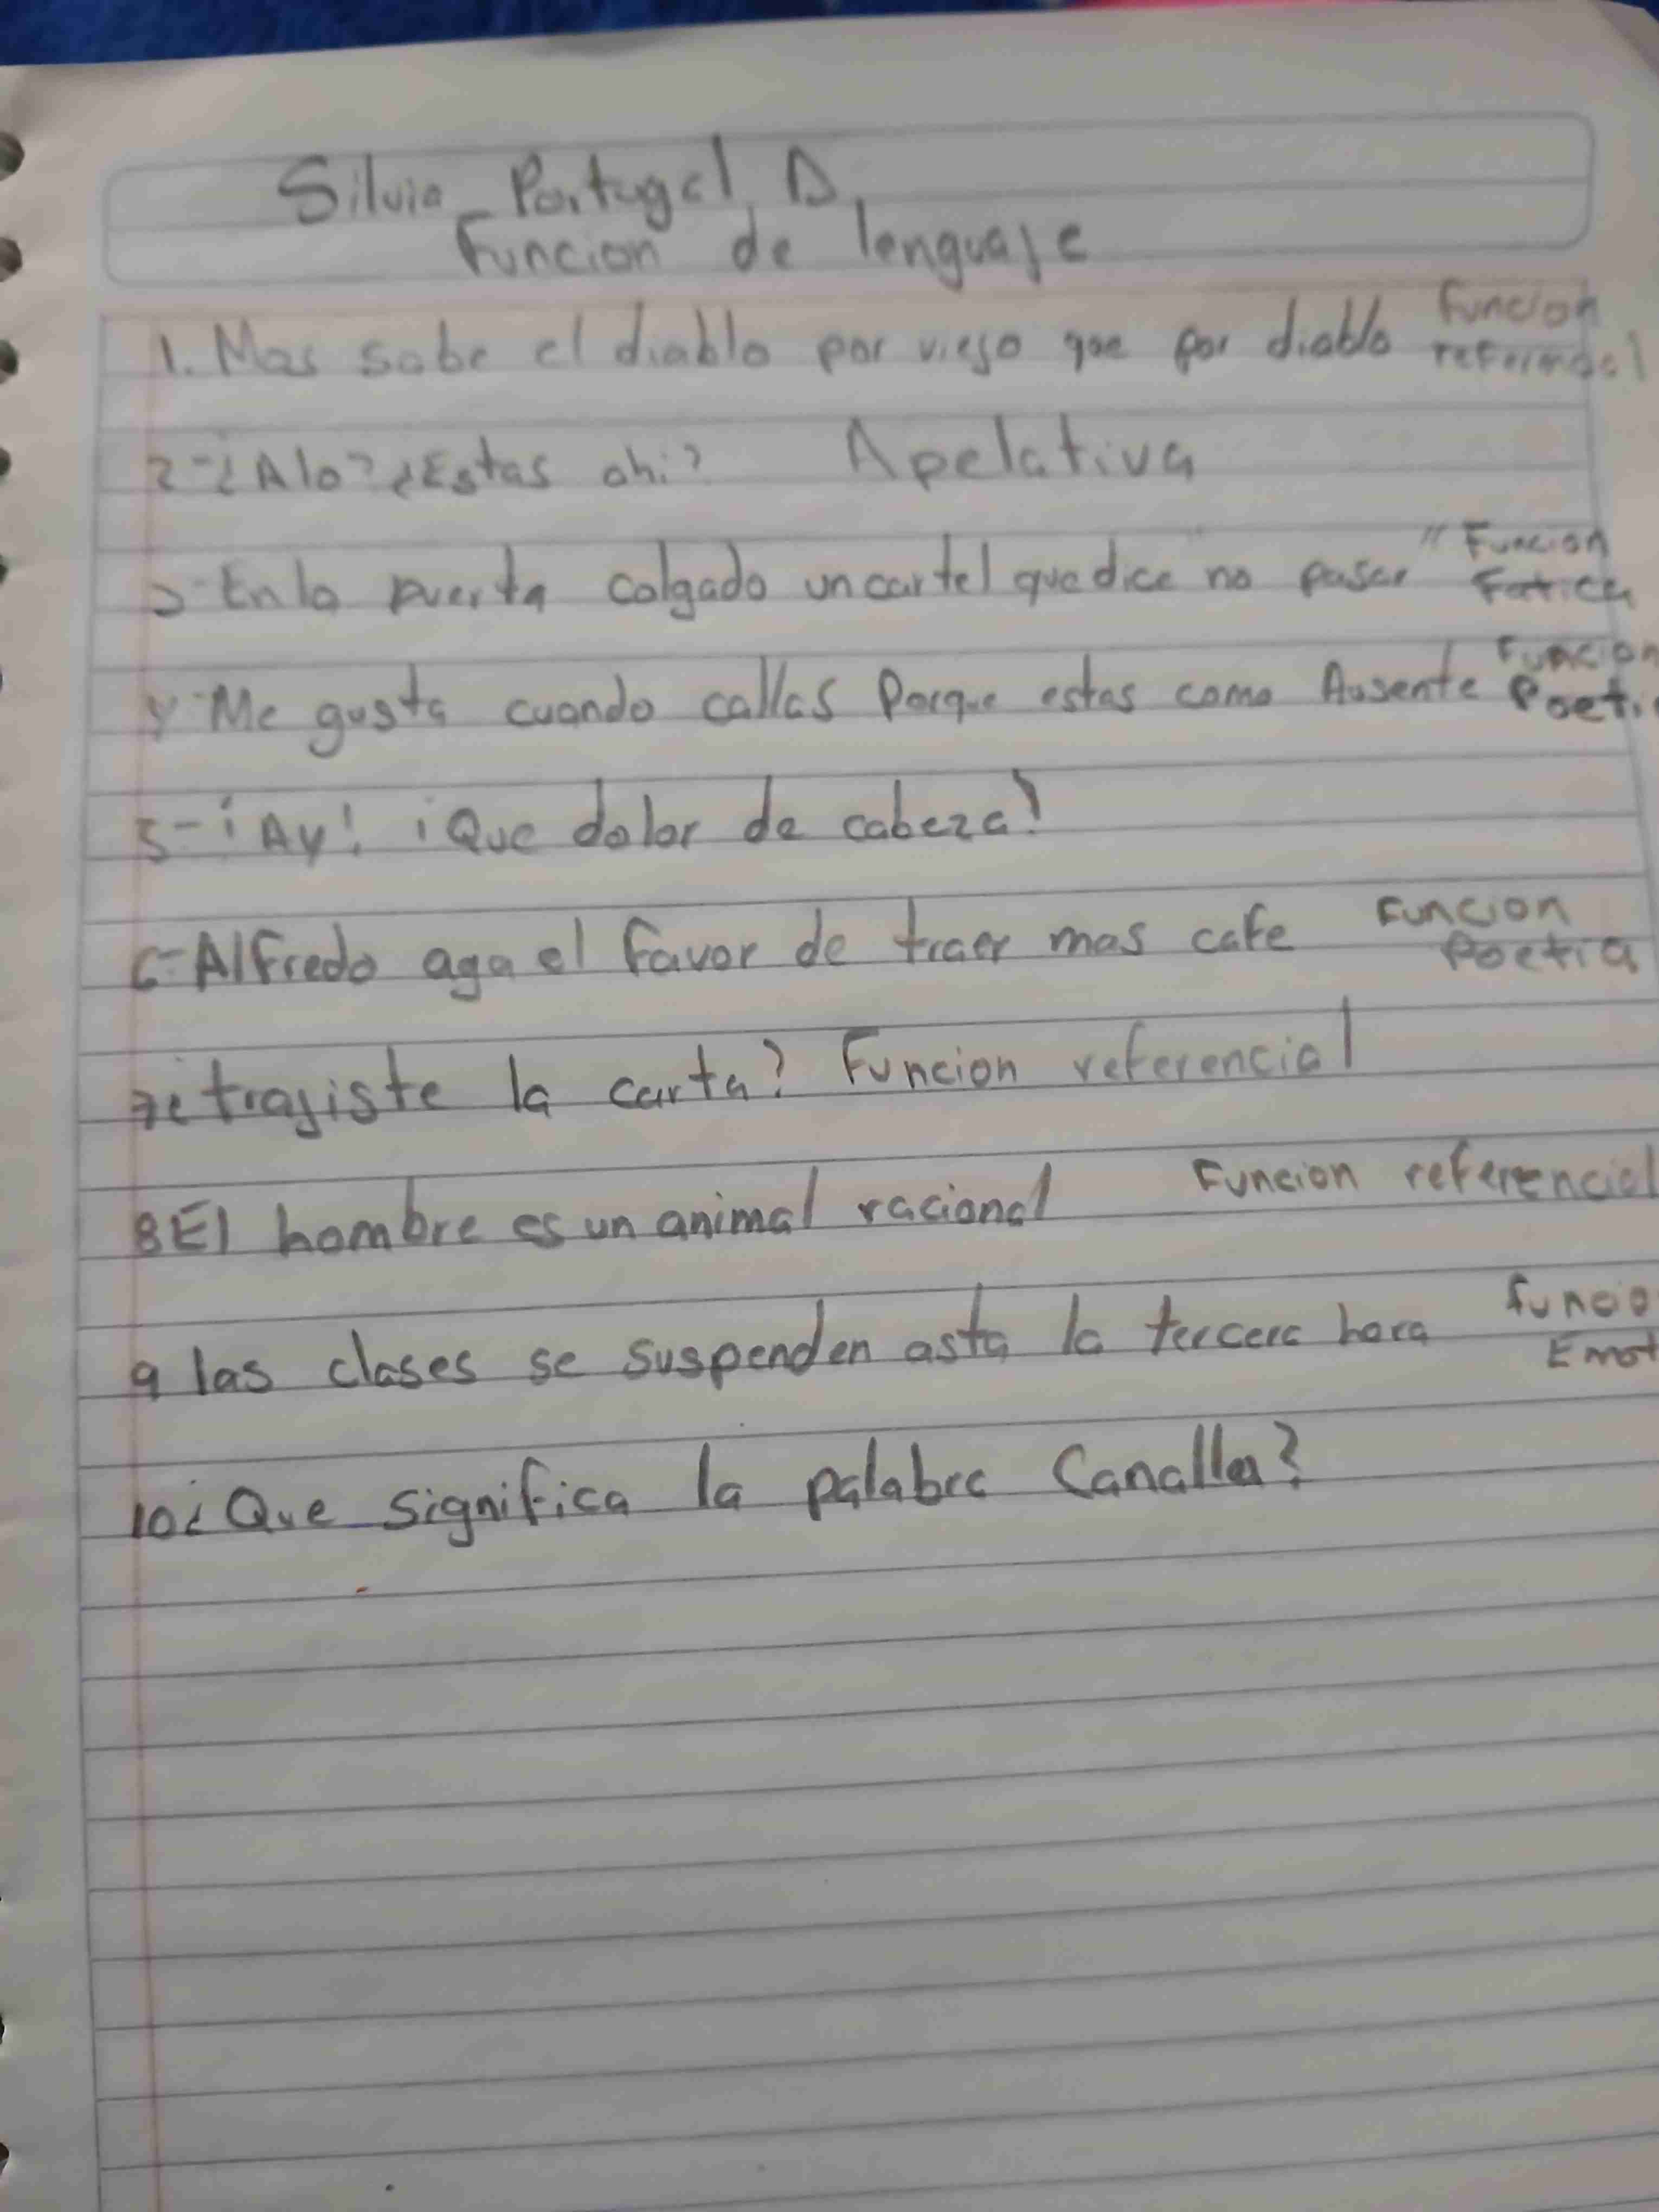 Silvia Portugal D.
Funcion de lenguaje
1. Mas sabe el diablo por viejo que por diablo funcion
referencial
2-¿Alo? ¿Estas ahi? Apelativa
3-En la puerta colgado un cartel que dice no pasar" Funcion
Fatica
4-Me gusta cuando callas Porque estas como Ausente Funcion
Poeti
5-¡Ay! ¡Que dolor de cabeza!
6-Alfredo aga el favor de traer mas cafe Funcion
Poetia
7¿trajiste la carta? Funcion referencial
8El hombre es un animal racional Funcion referencial
9 las clases se suspenden asta la tercera hora funcio
Emot
10¿Que significa la palabra Canalla?